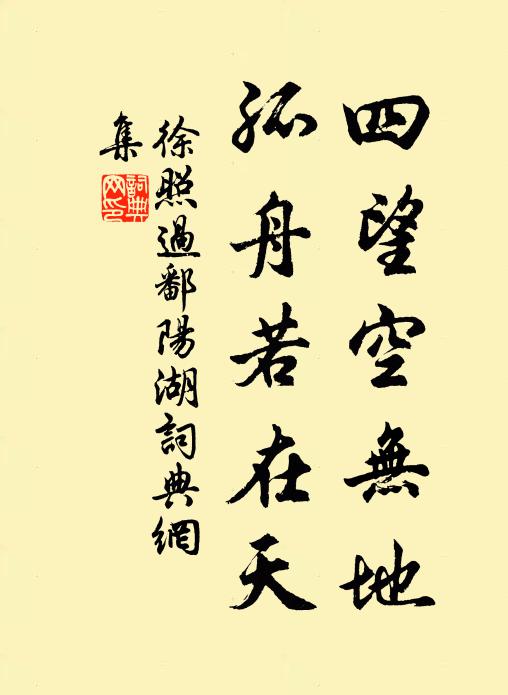 四望空無地
孤舟若在天
徐照過鄱陽湖詞典網
集
詞典
网印